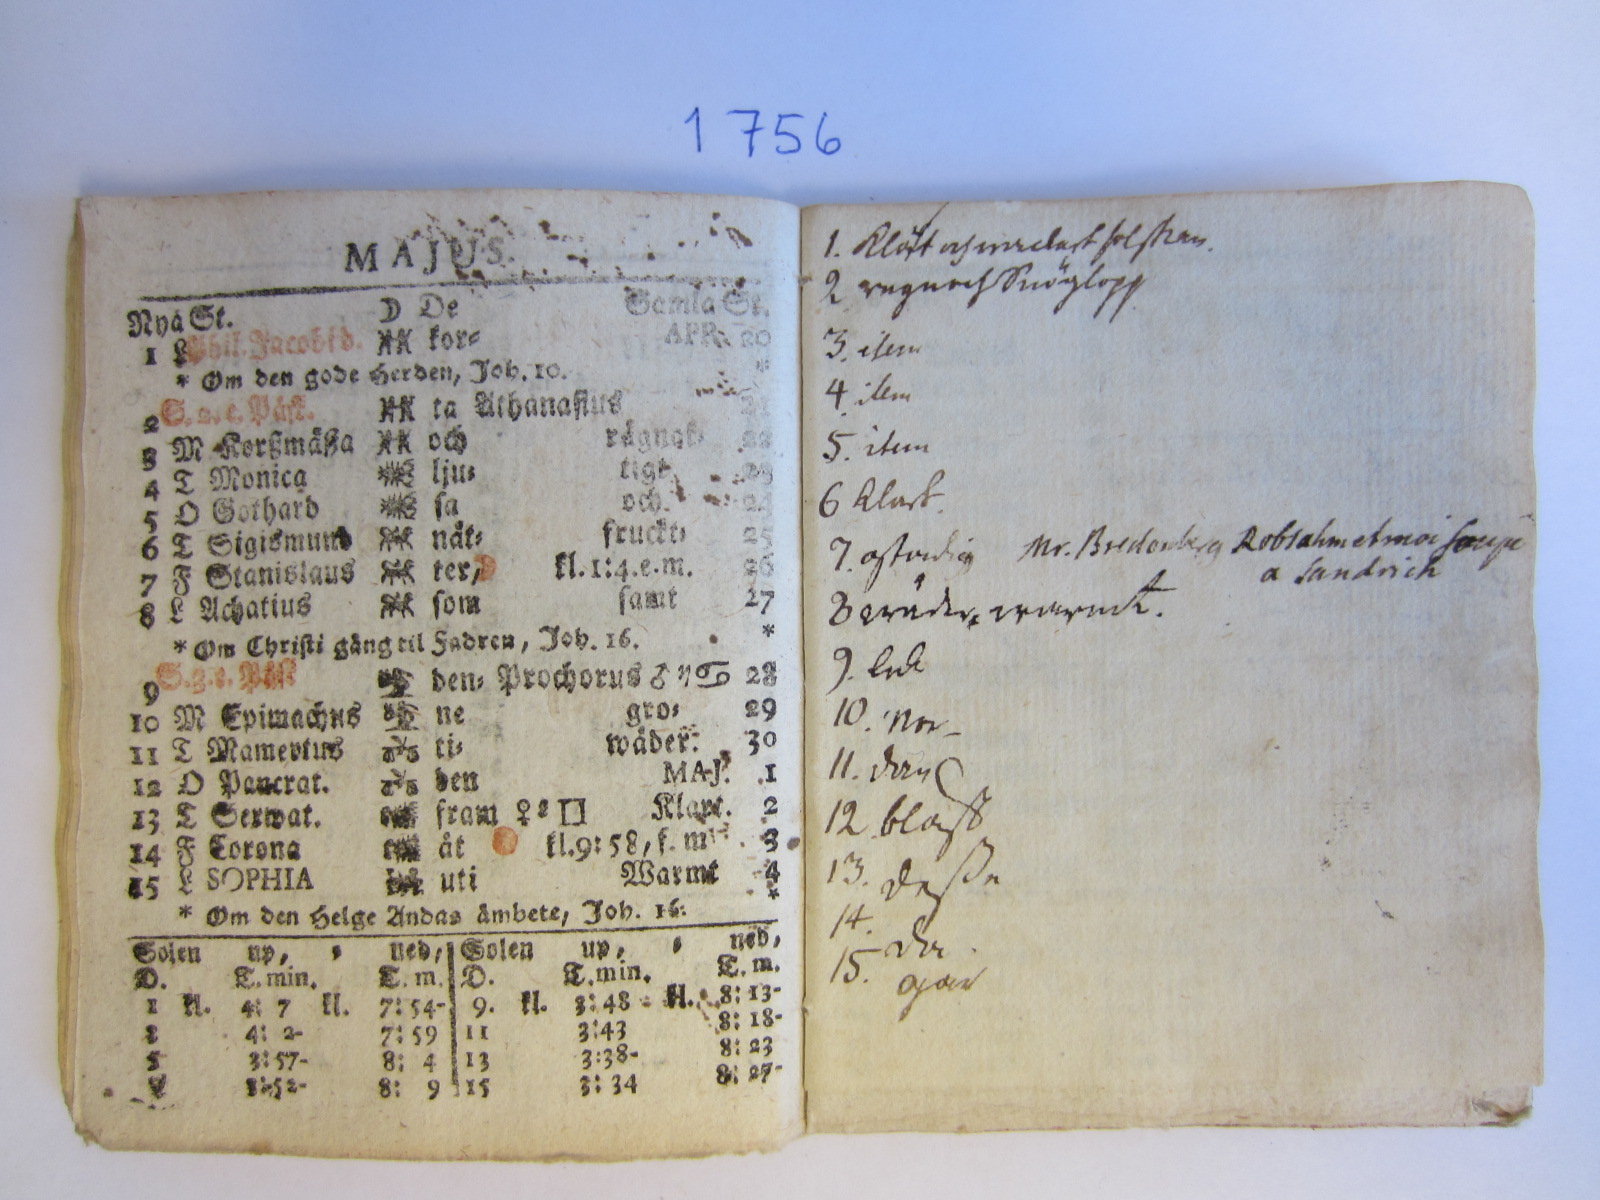 1756
MAJUS.
Nya St. De Gamla St.
1 L Phil. Jacobi d. kor⸗ APR. 20
* Om den gode Herden, Joh. 10. *
2 S. 2. e. Påsk. ta Athanasius 21
3 M Korßmäßa och rägnak⸗ 22
4 T Monica lju⸗ tigt 23
5 O Gothard sa och 24
6 T Sigismund nät⸗ fruckt⸗ 25
7 F Stanislaus ter, kl. 1:4. e. m. 26
8 L Achatius som samt 27
* Om Christi gång til Fadren, Joh. 16. *
9 S. 3. e. Påsk den⸗ Prochorus ♂ ♋ 28
10 M Epimachus ne gro⸗ 29
11 T Mamertus ti⸗ wäder. 30
12 O Pancrat. den MAJ. 1
13 T Serwat. fram ♀ □ Klart. 2
14 F Corona åt kl. 9:58, f. m 3
15 L SOPHIA uti Warmt 4
* Om den Helge Andas ämbete, Joh. 16. *
Solen up, ⸗ ned, Solen up, ⸗ ned,
D. T. min. T. m. D. T. min. T. m.
1 kl. 4: 7 kl. 7:54- 9. kl. 3:48 - kl. 8:13-
4: 2- 7:59 11 3:43 8:18-
5 3:57- 8: 4 13 3:38- 8:23
3:52- 8: 9 15 3:34 8:27-
1. solsken.
2 regn och Snöglopp
3. item
4 item
5. item
6 klart.
7. ostadig Mr. Bredenberg Robsahm et moi
a Sandvich
8 wäder warmt.
9.
10. Nor-
11. dan
12 blåst
13. desse
14. da
15. gar